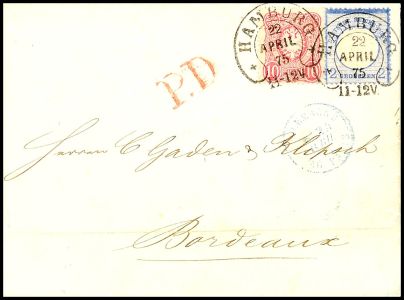 HAMBURG
22
APRIL
75
11-12V.
HAMBURG
22
APRIL
75
11-12V.
10 10
2 2
GROSCHEN
P.D
Herren C Gaden & Klipsch
Bordeaux